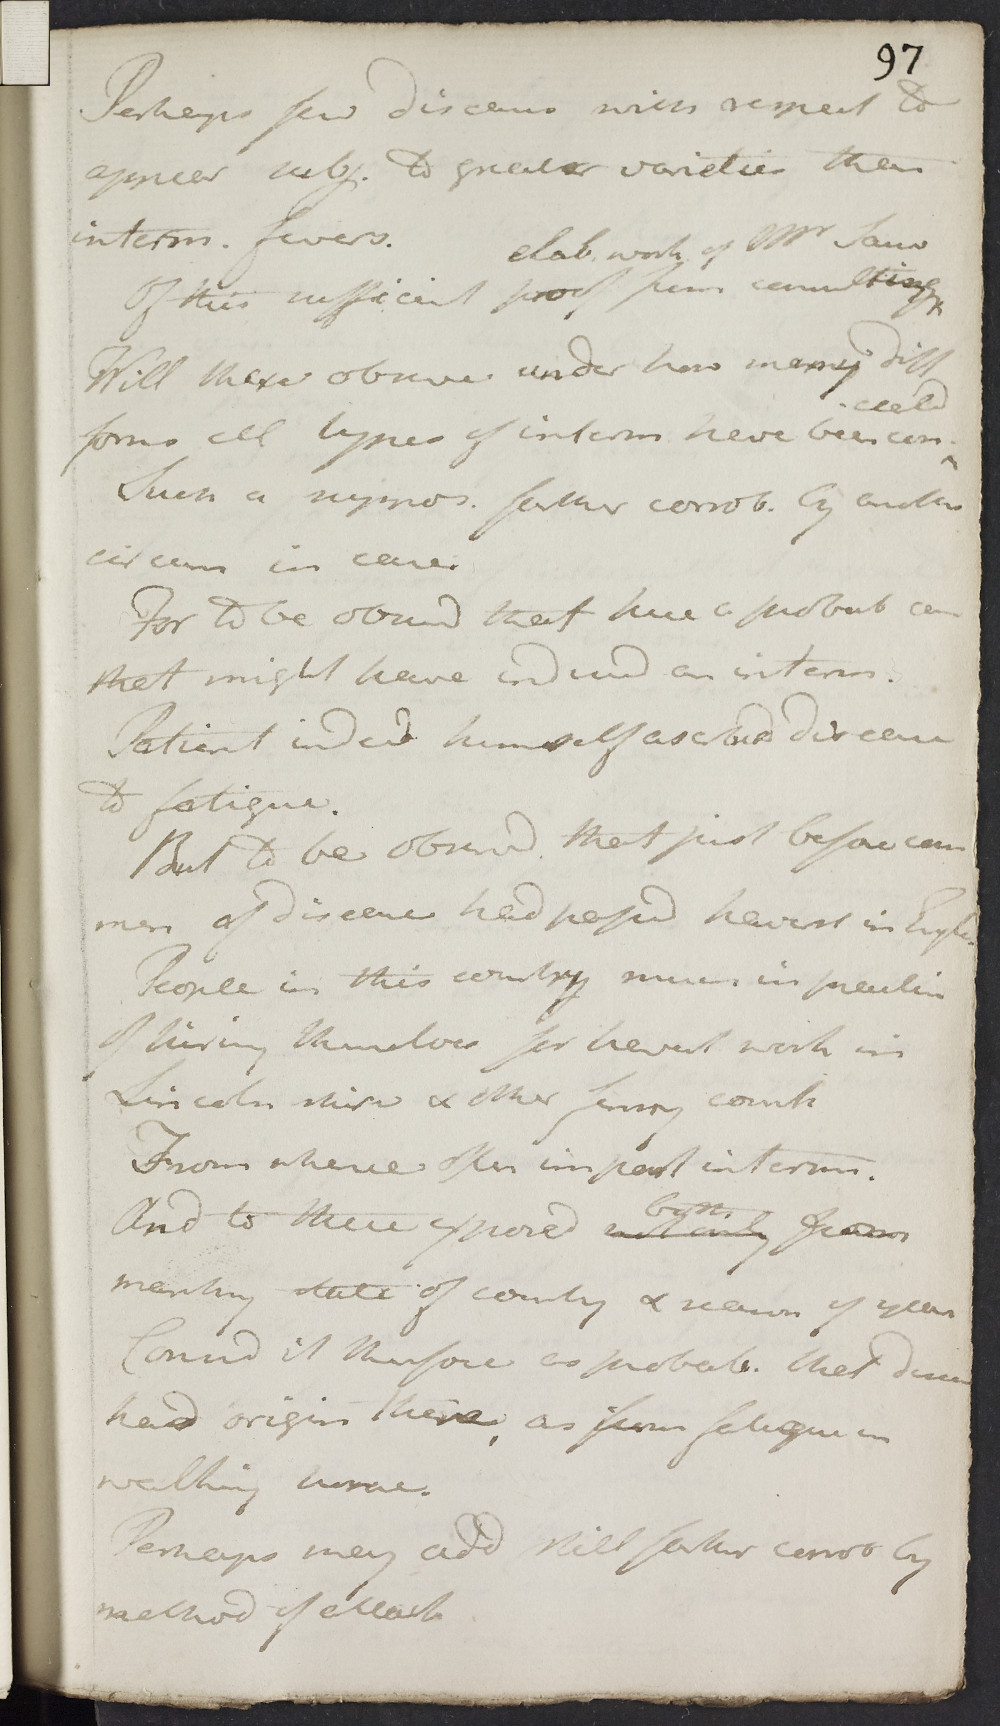 97
Perhaps few diseases with respect to
appear subj. to greater varieties than
interm. fevers.
elab. work of Mr Sauv
Of this sufficient proof from consulting
Will there observe under how many diff
forms all types of interm have been con-
-ceald
Such a suppos. farther corrob. by another
circum in case.
For to be observd that here a probab cau
that might have inducd an interm.
Patient indeed himself ascribd disease
to fatigue.
But to be observd that just before com
men of disease had passd harvest in Engl.
People in this country much in practice
Of hiring themselves for harvest work in
Lincoln shire & other fenny counts
From whence often import interm.
And to these exposd both from
marshy state of country & season of year
Consid it therefore as probab. that disea
had origin there, as from fatigue in
walking home.
Perhaps may add still farther corrob by
method of attack